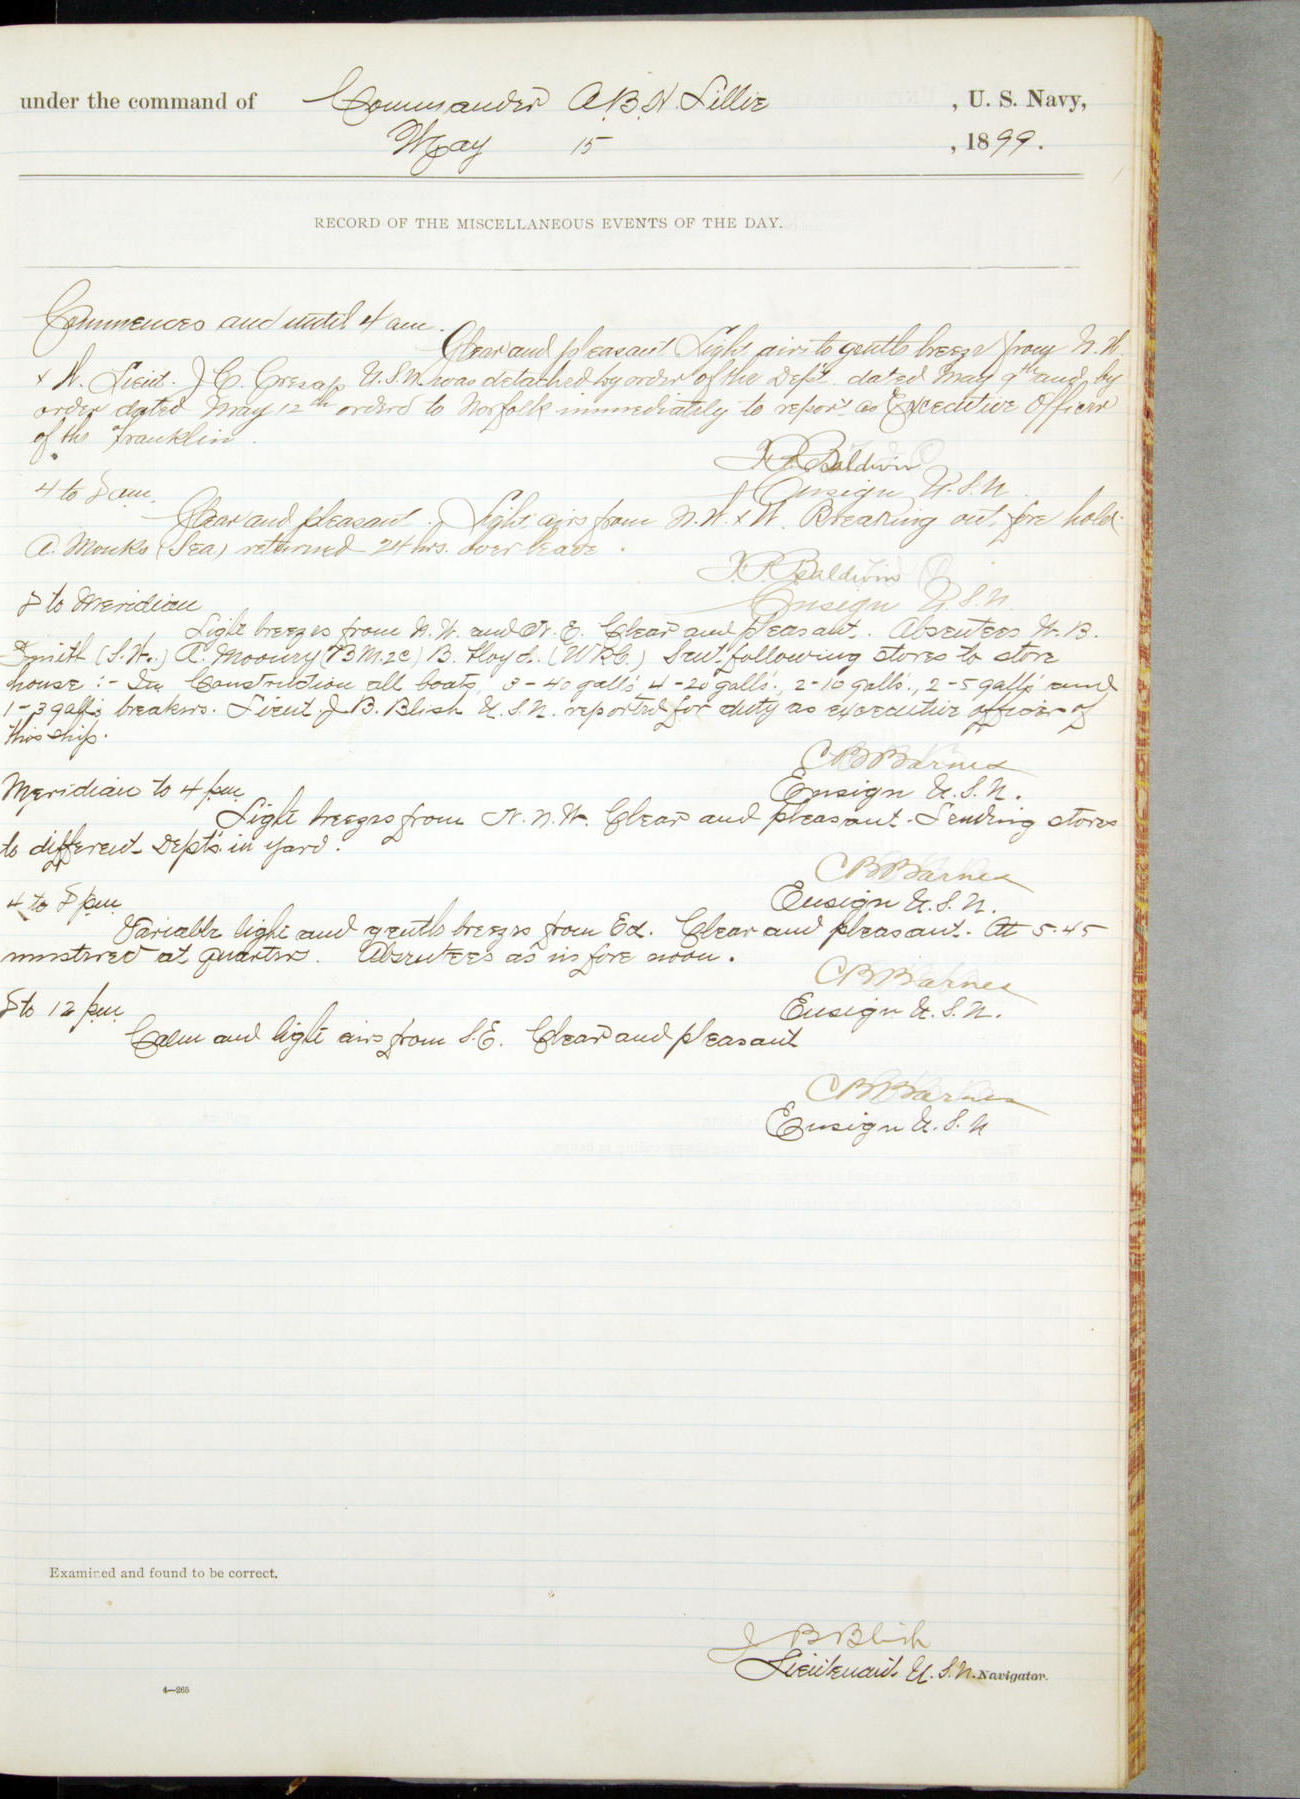 under the command of Commander A. B. H. Lillie , U. S. Navy,
May 15 , 1899.
RECORD OF THE MISCELLANEOUS EVENTS OF THE DAY.
Commences and until 4 am.
Clear and pleasant Light airs to gentle breeze from N. W.
& W. Lieut. J. C. Cresap U.S.N. was detached by order of the Dept. dated May 9th and by
order dated May 12th orderd to Norfolk immediately to report as Executive Officer
of the Franklin.
Baldwin
Ensign U.S.N.
4 to 8 am.
Clear and pleasant. Light airs from N. W. & W. Breaking out fore hold.
A. Monks (Sea) returned 24 hrs. over leave.
Baldwin
Ensign U.S.N.
8 to Meridian
Light breezes from N. W. and N. E. Clear and pleasant. Absentees W. B.
Smith (S.W.) A. Mooney (B M. 2c) B. Floyd. (WRC.) Sent following stores to store
house :- In Construction all boats, 3-40 galls, 4-20 galls., 2-10 galls., 2-5 galls and
1-3 galls breakers. Lieut J. B. Blish U.S.N. reported for duty as executive officer of
this ship.
C B Barnes
Ensign U.S.N.
Meridian to 4 pm
Light breezes from N. N. W. Clear and pleasant. Sending stores
to different Depts. in yard.
C B Barnes
Ensign U.S.N.
4 to 8 pm
Variable light and gentle breezes from Ed. Clear and pleasant. At 5.45
mustered at quarters. Absentees as in fore noon.
C B Barnes
Ensign U.S.N.
8 to 12 pm
Calm and light airs from S.E. Clear and pleasant
C B Barnes
Ensign U.S.N
Examined and found to be correct.
J B Blish
Lieutenant U.S.N. Navigator.
4—265